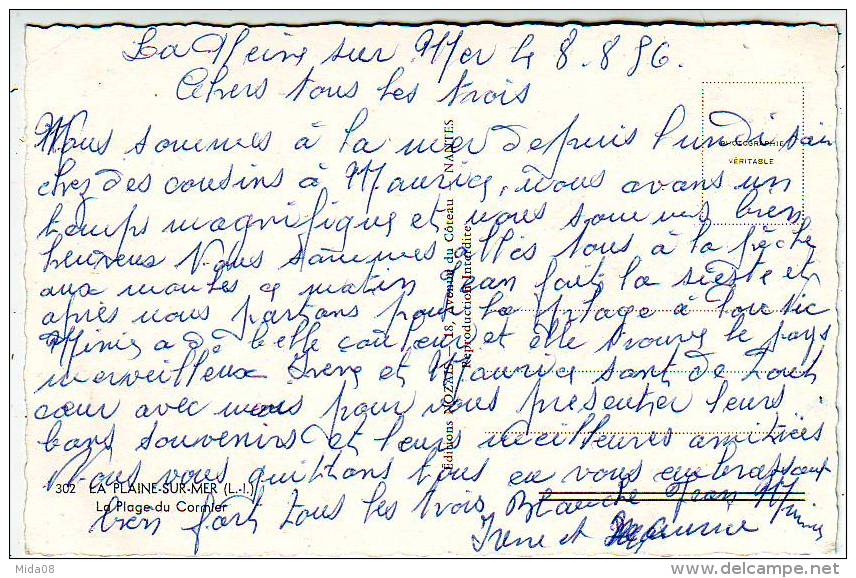 La Pleine sur Mer le 8.8.86.
Chers tous les trois
Nous sommes à la mer depuis lundi soir
chez des cousins à Maurice, nous avons un
temps magnifique et nous sommes bien
heureux Nous sommes allés tous à la pêche
aux moules ce matin Jean fait la sieste et
après nous partons pour la plage à
Mimis a de belle couleur et elle trouve le pays
merveilleux Irene et Maurice sont de tout
cœur avec nous pour vous présenter leurs
bons souvenirs et leurs meilleures amitiés
Nous vous quittons tous en vous embrassant
bien fort tous les trois Blanche Jean Mimis
Irene et Maurice
PHOTOGRAPHIE
VÉRITABLE
Editions NOZAIS, 18, Avenue du Côteau NANTES
Reproduction Interdite
302 LA PLAINE-SUR-MER (L.-I.)
La Plage du Cormier
Mida08
www.delcampe.net